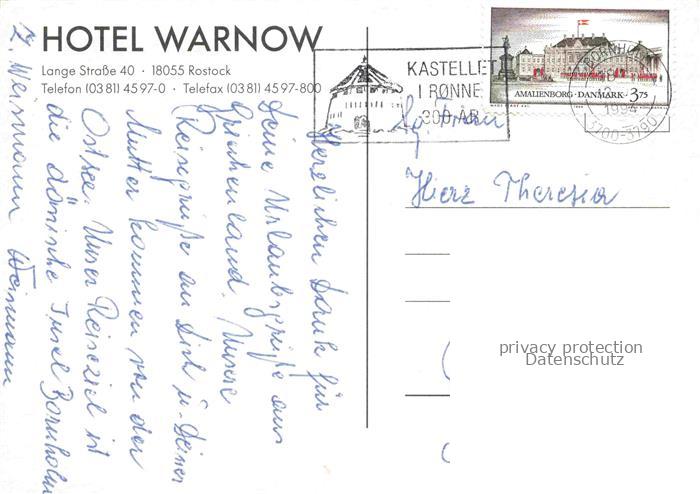 HOTEL WARNOW
Lange Straße 40 · 18055 Rostock
Telefon (03 81) 45 97-0 · Telefax (03 81) 45 97-800
KASTELLET
I RØNNE
300 ÅR
BORNHOLM
1994
3700-3790
AMALIENBORG · DANMARK · 3 75
Herzlichen Dank für
Deine Urlaubsgrüße aus
Griechenland. Unsere
Reisegrüße an Dich u. Deine
Mutter kommen von der
Ostsee. Unser Reiseziel ist
die dänische Insel Bornholm
Z. Weismann Weismann
Herz Theresia
privacy protection
Datenschutz